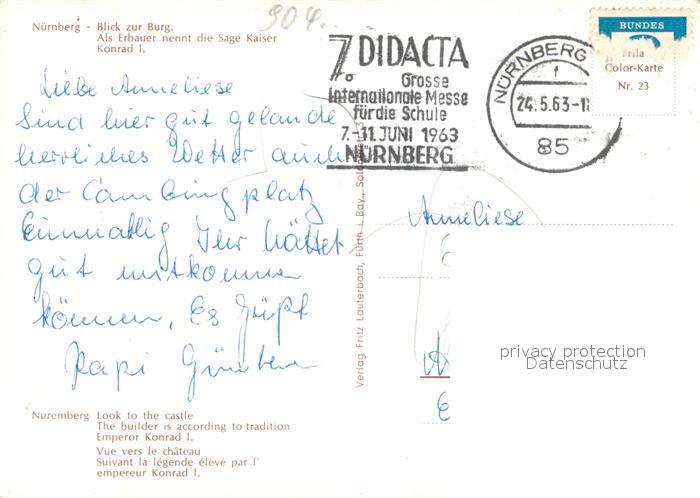 904.
Nürnberg - Blick zur Burg.
Als Erbauer nennt die Sage Kaiser
Konrad I.
Liebe Anneliese
Sind hier gut gelande
herrliches Wetter auch
der Cambingplatz
Einmallig Ihr hättet
gut mitkomme
können, Es grüßt
Papi Günter
Nuremberg Look to the castle
The builder is according to tradition
Emperor Konrad I.
Vue vers le château
Suivant la légende élevé par l'
empereur Konrad I.
Verlag Fritz Lauterbach, Fürth i. Bay.,
7. DIDACTA
Grosse
internationale Messe
für die Schule
7.-11. JUNI 1963
NÜRNBERG
NÜRNBERG
f
24.5.63-11
85
BUNDES
Frila
Color-Karte
Nr. 23
Anneliese
privacy protection
Datenschutz